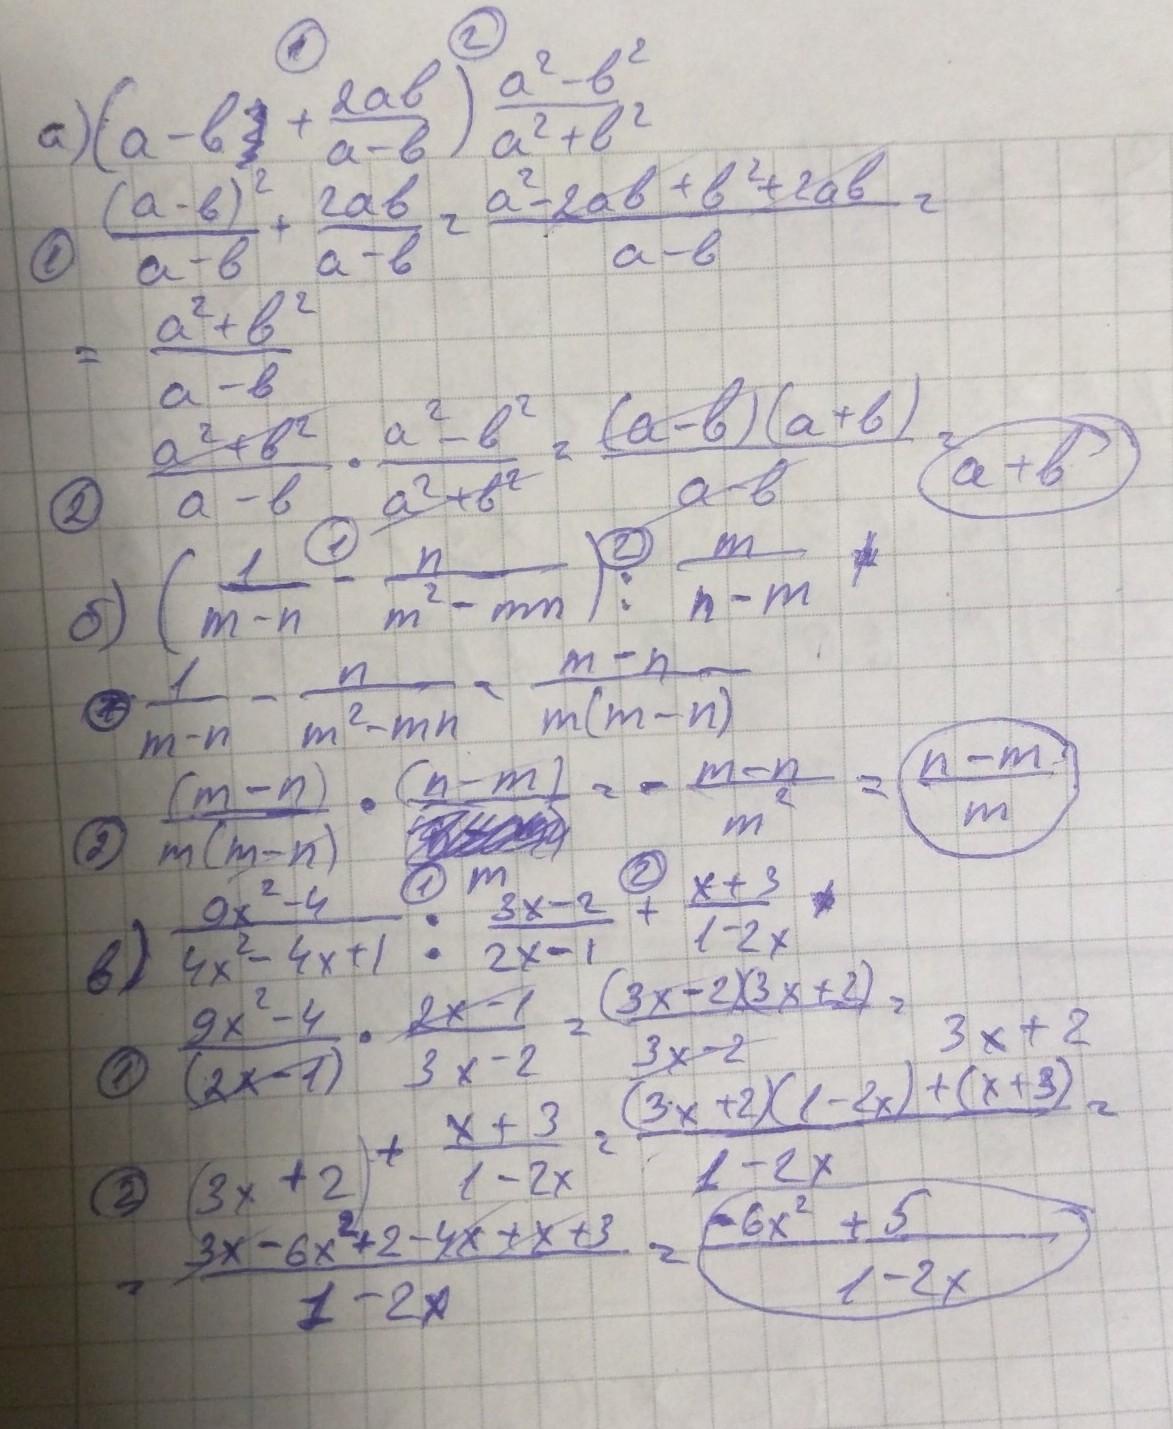 ① ②
а) (a - b + 2ab/(a - b)) (a² - b²)/(a² + b²)
① (a - b)²/(a - b) + 2ab/(a - b) = (a² - 2ab + b² + 2ab)/(a - b) =
= (a² + b²)/(a - b)
② (a² + b²)/(a - b) · (a² - b²)/(a² + b²) = (a - b)(a + b)/(a - b) = a + b
① ②
б) (1/(m - n) - n/(m² - mn)) : m/(n - m)
1/(m - n) - n/(m² - mn) = (m - n)/(m(m - n))
② (m - n)/(m(m - n)) · (n - m)/m = - (m - n)/m² = (n - m)/m
① ②
в) (9x² - 4)/(4x² - 4x + 1) : (3x - 2)/(2x - 1) + (x + 3)/(1 - 2x)
① (9x² - 4)/(2x - 1) · (2x - 1)/(3x - 2) = (3x - 2)(3x + 2)/(3x - 2) = 3x + 2
② (3x + 2) + (x + 3)/(1 - 2x) = ((3x + 2)(1 - 2x) + (x + 3))/(1 - 2x) =
= (3x - 6x² + 2 - 4x + x + 3)/(1 - 2x) = (-6x² + 5)/(1 - 2x)